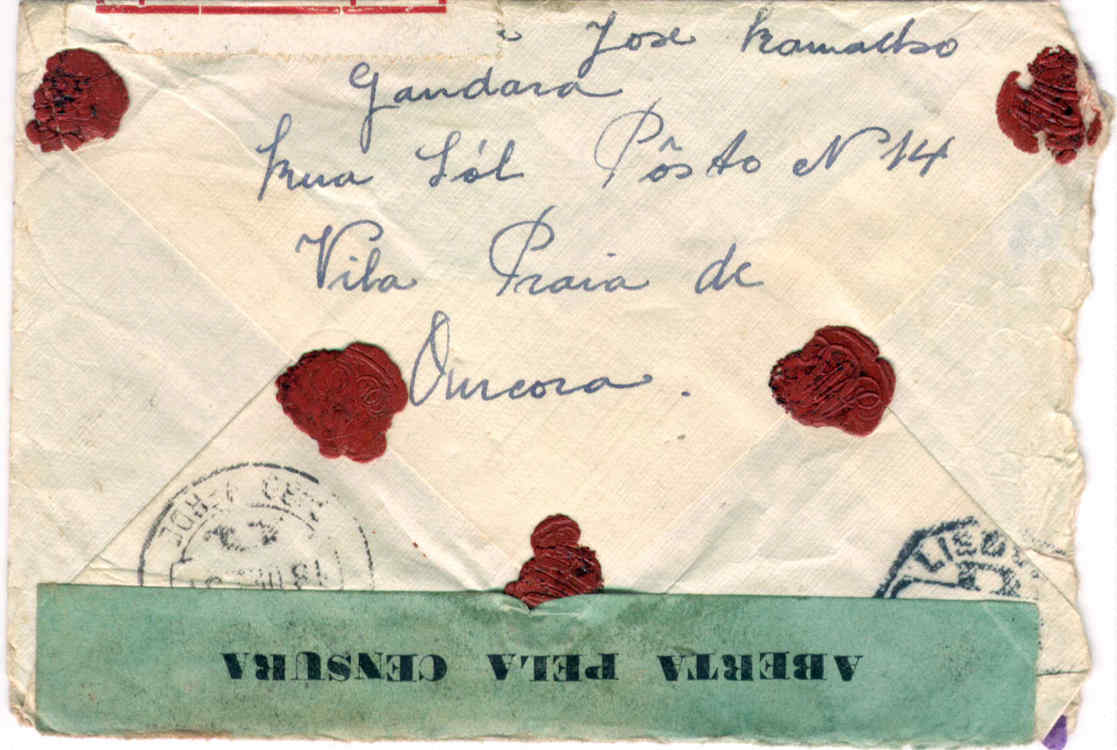 José Ramalho
Gandara
Rua Sól Pôsto Nº 14
Vila Praia de
Âncora.
VERDE
LISBOA
ABERTA PELA CENSURA